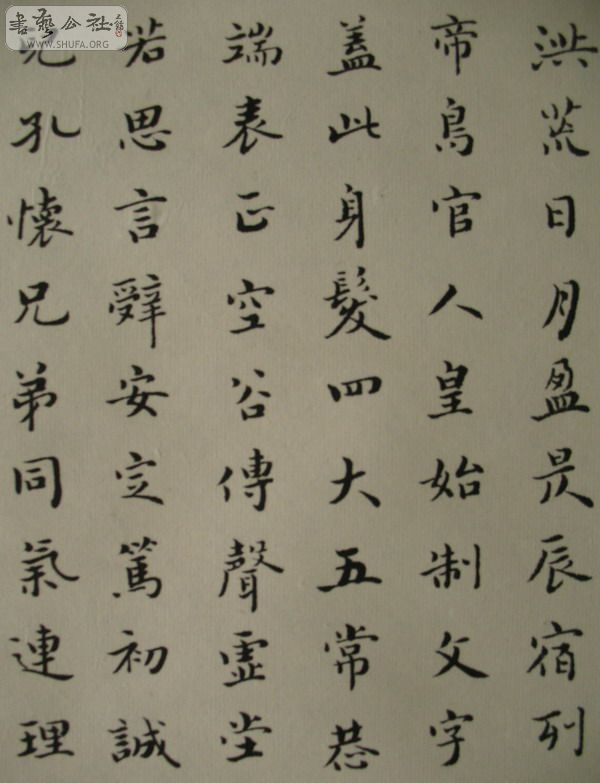 書藝公社
WWW.SHUFA.ORG
洪荒日月盈昃辰宿列
帝鳥官人皇始制文字
蓋此身髮四大五常恭
端表正空谷傳聲虛堂
若思言辭安定篤初誠
兒孔懷兄弟同氣連理